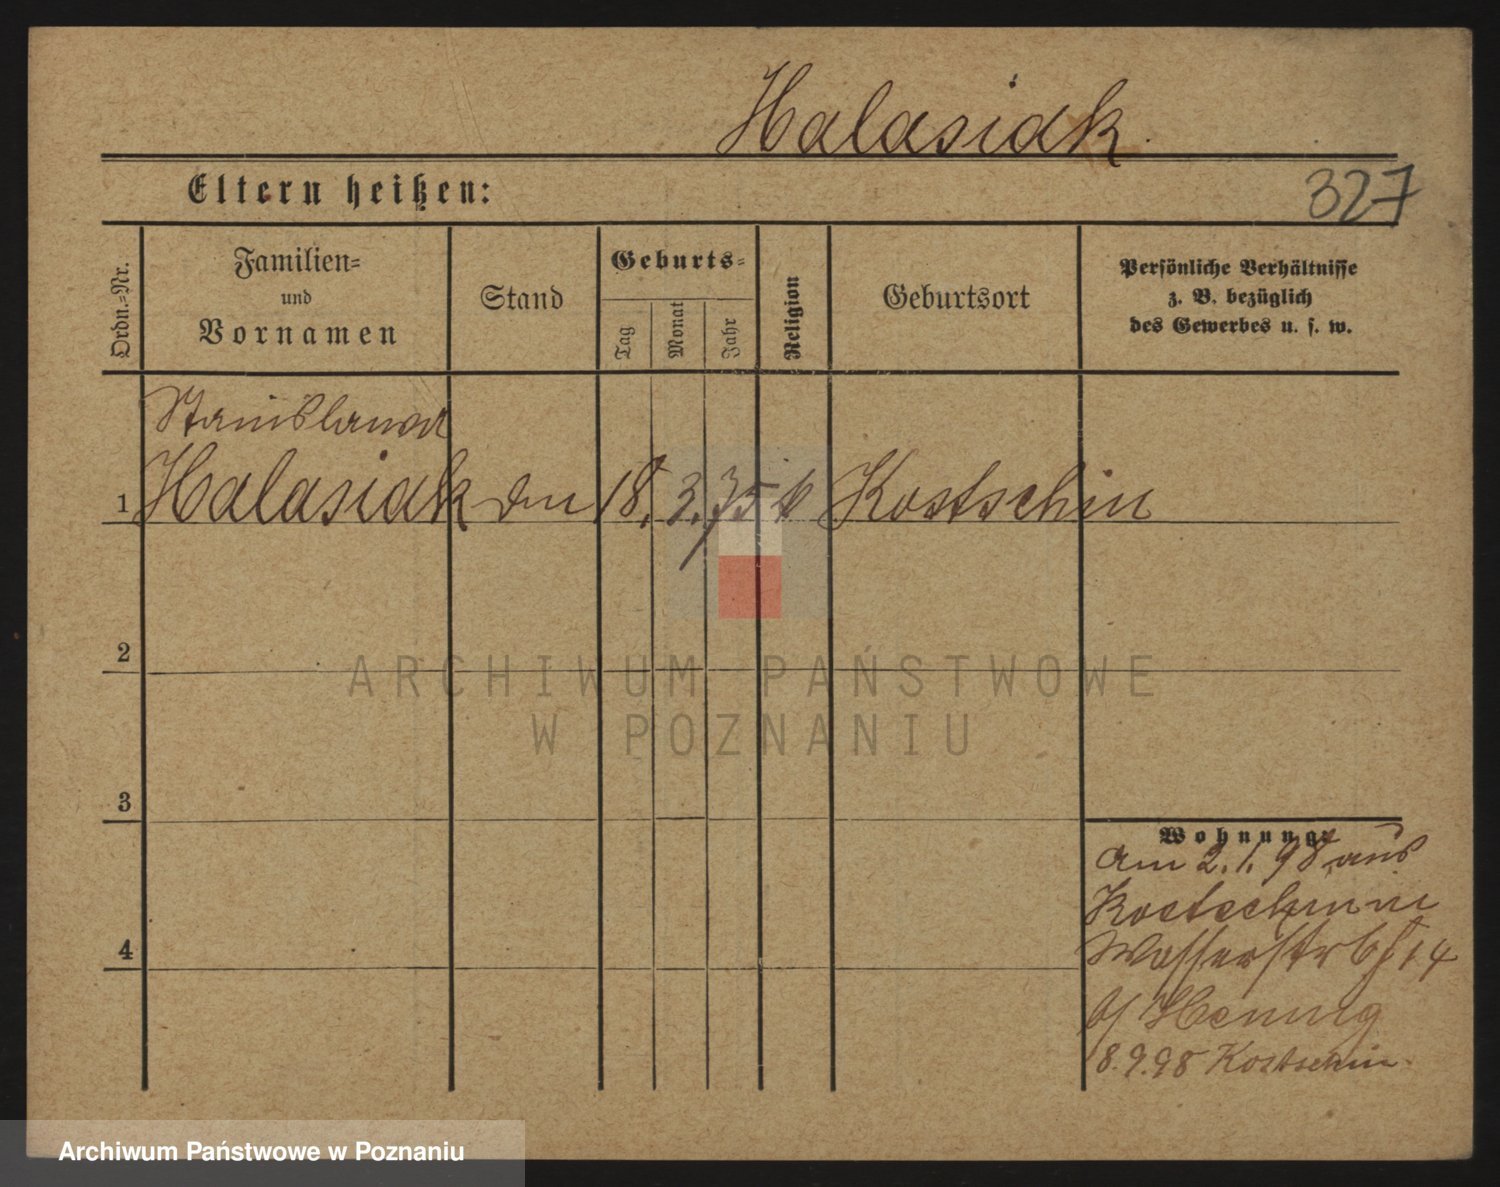 Halasiak.
Eltern heißen:
327
Ordn.-Nr.
Familien-
und
Vornamen
Stand
Geburts-
Tag
Monat
Jahr
Religion
Geburtsort
Persönliche Verhältnisse
z. B. bezüglich
des Gewerbes u. s. w.
Stanislawa
1 Halasiak 18. 3. 75 k Kostschin
2
ARCHIWUM PAŃSTWOWE
W POZNANIU
3
Wohnung:
am 2.1.98 aus
Kostschin in
Wasserstr 14
b/ Hennig
8.9.98 Kostschin.
4
Archiwum Państwowe w Poznaniu